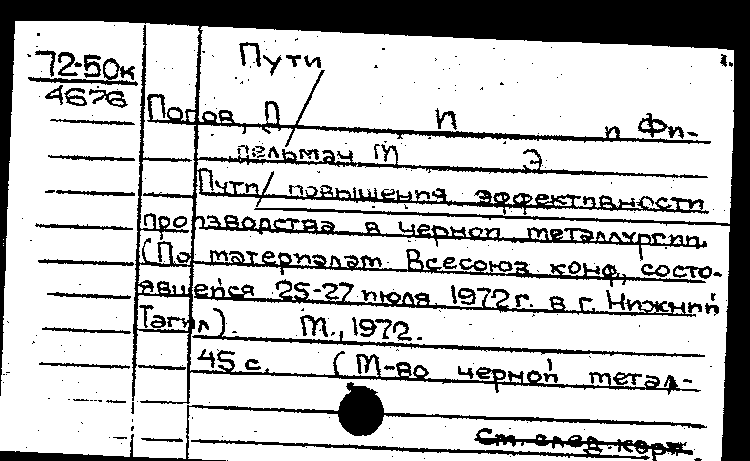 Пути
1.
72-50к
4676
Попов, Л И и Фи-
пельман М Э
Пути/ повышения эффективности
производства в черной металлургии.
(По материалам Всесоюз конф, состо-
явшейся 25-27 июля 1972 г. в г. Нижний
Тагил). М., 1972.
45 с. (М-во черной метал-
См. след. карт.